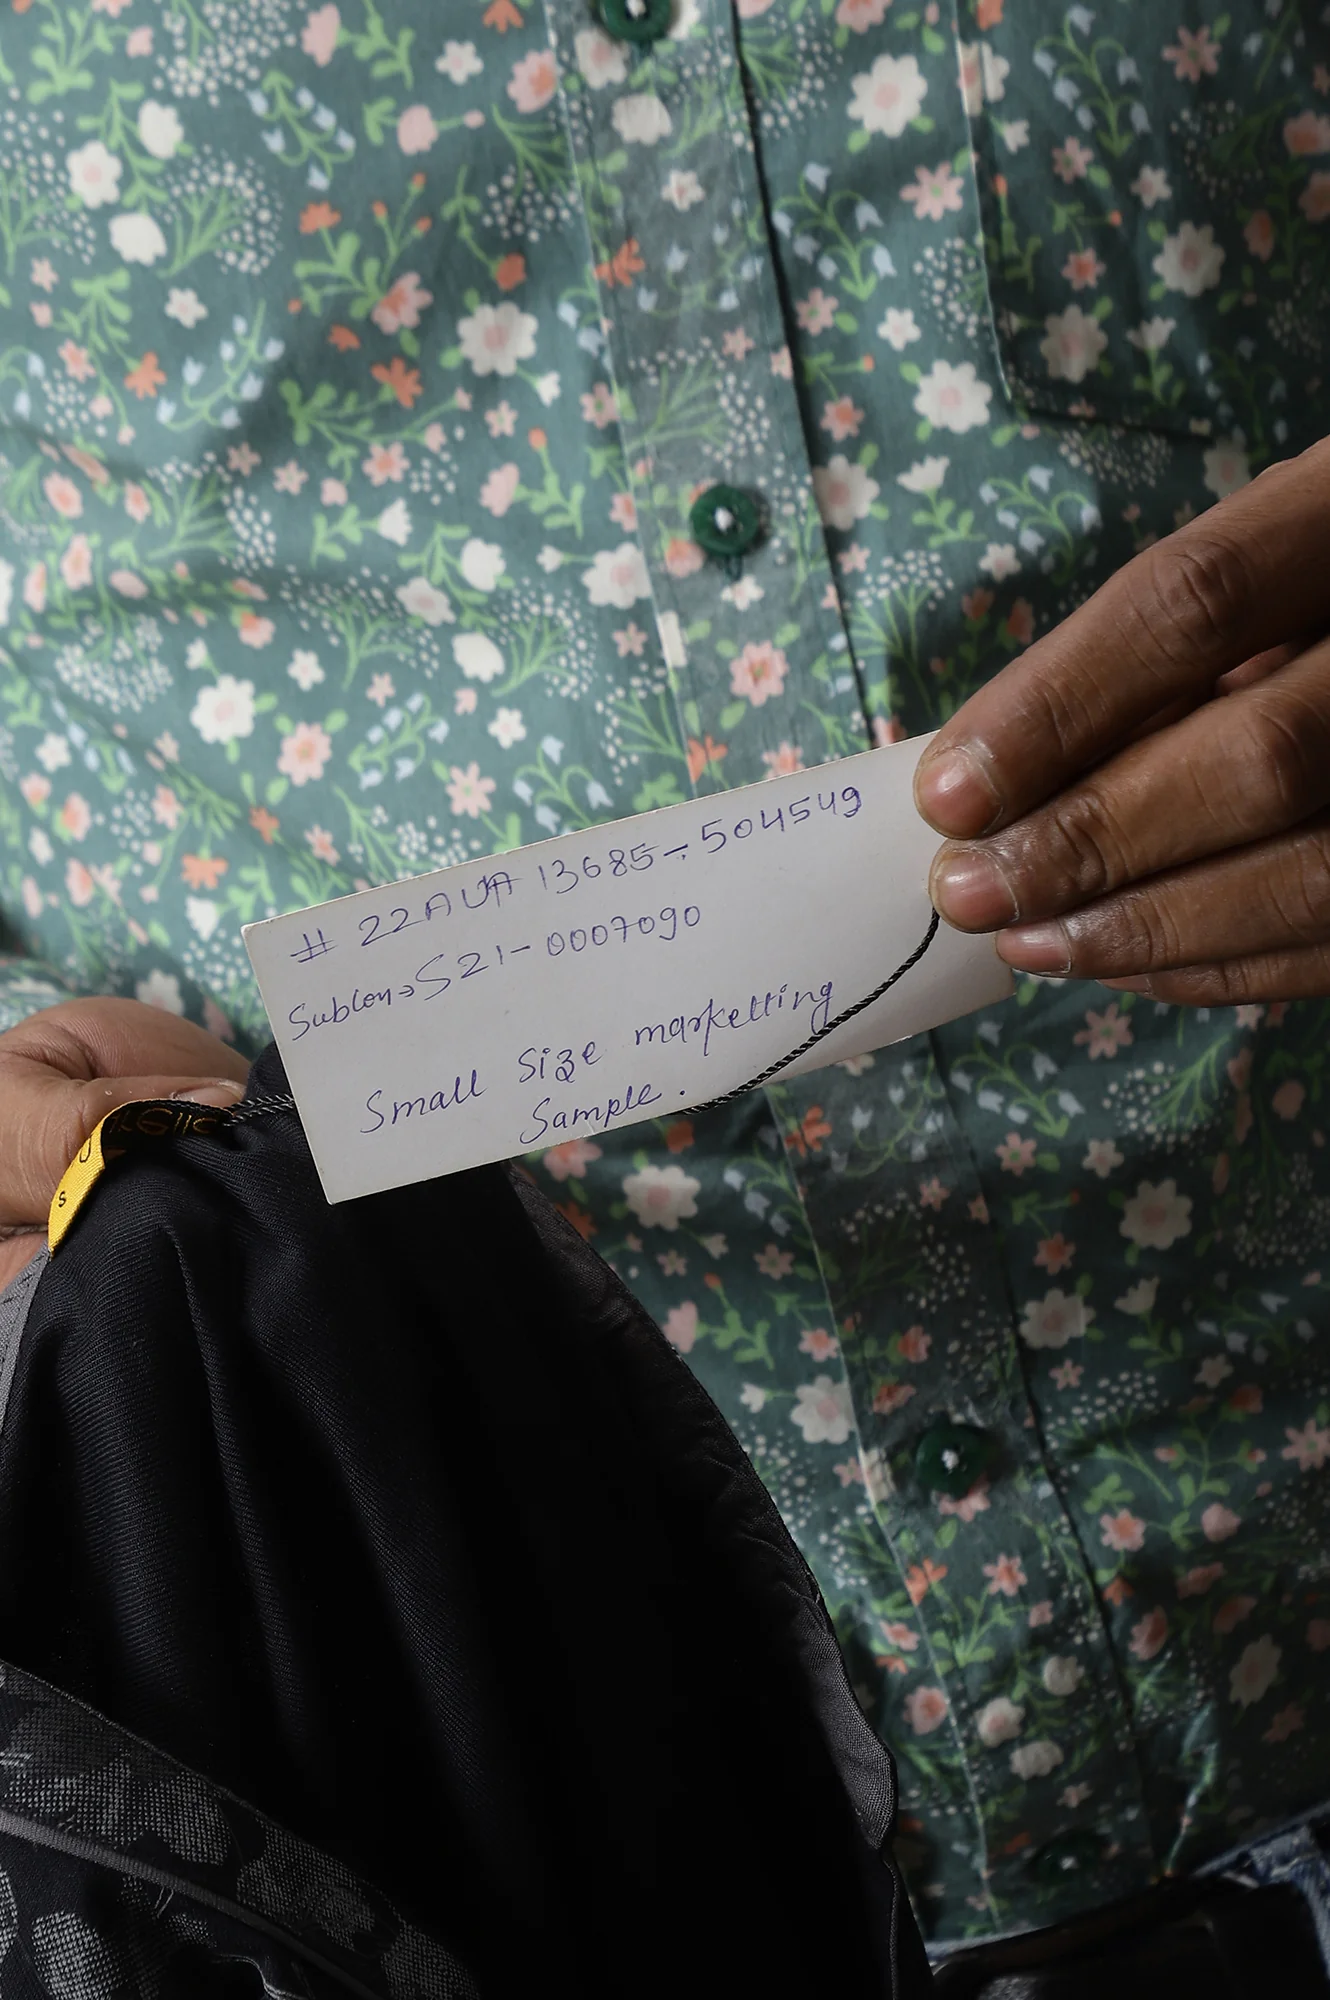 # 22AUA 13685-504549
Subcon → S21-0007090
Small Size marketting
Sample.
S